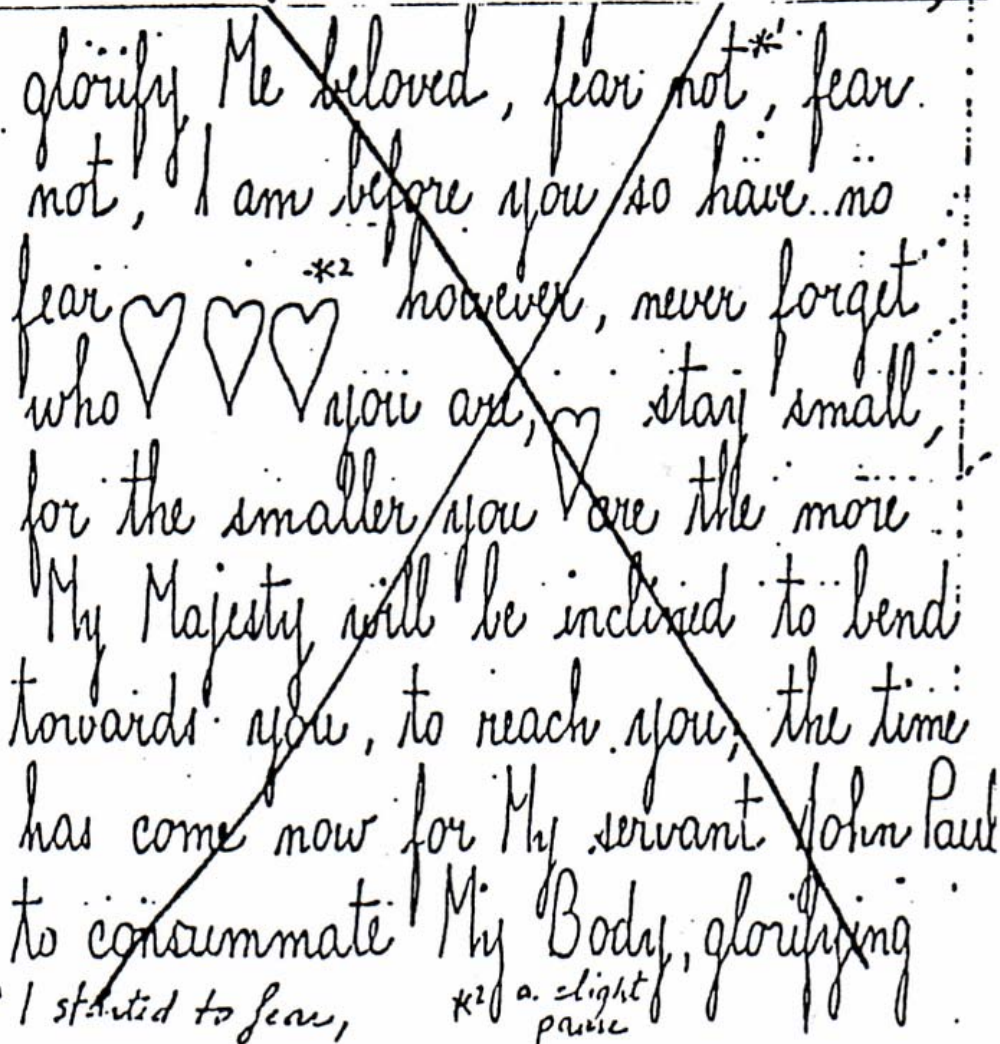 glorify Me beloved, fear not*¹, fear
not, I am before you so have no
fear ♡ ♡ ♡ *² however, never forget
who you are, ♡ stay small,
for the smaller you are the more
My Majesty will be inclined to bend
towards you, to reach you, the time
has come now for My servant John Paul
to consummate My Body, glorifying
¹ I started to fear, *² a slight
pause